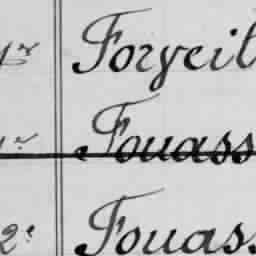 1r Forgeit
1r Fouass
2e Fouass